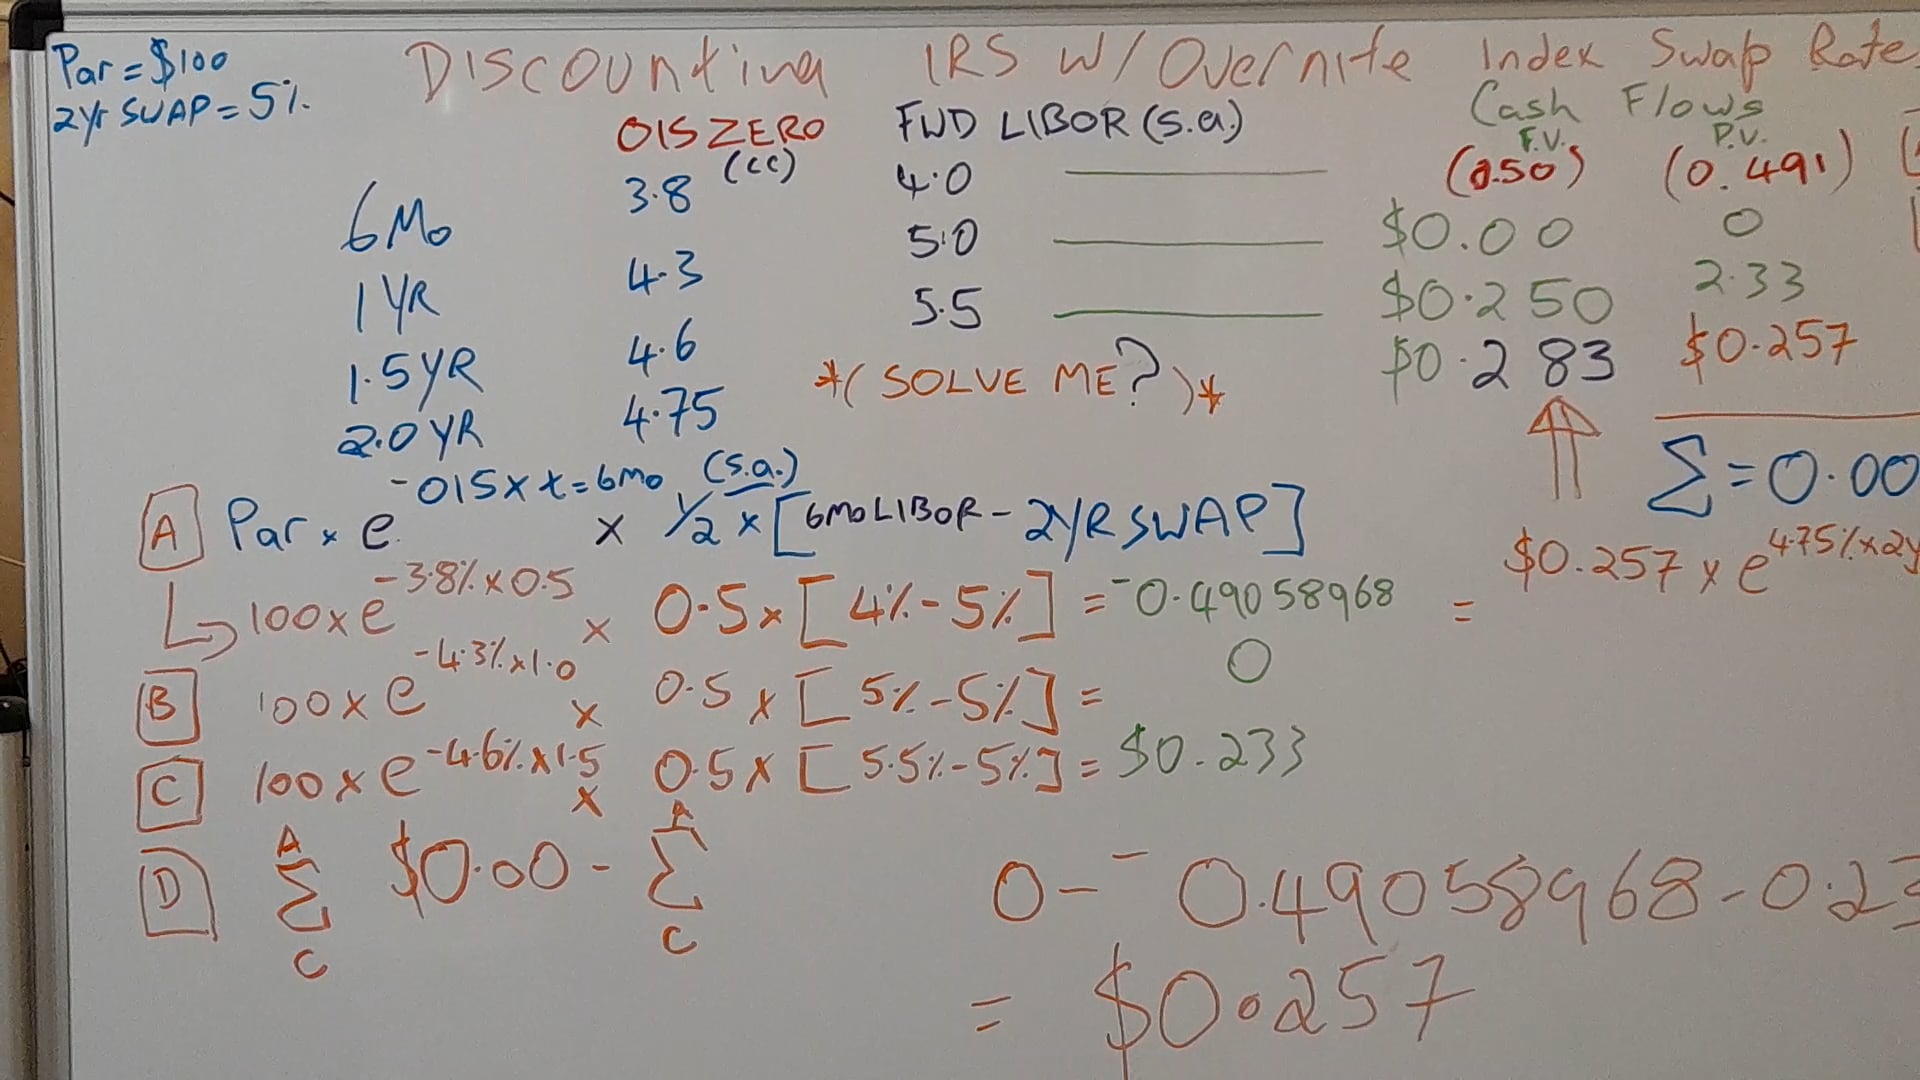 Par = $100
2yr SWAP = 5%
Discounting IRS w/ Overnite Index Swap Rate
Cash Flows
OIS ZERO (cc) FWD LIBOR (s.a.) F.V. P.V.
6Mo 3.8 4.0 (0.50) (0.491)
1YR 4.3 5.0 $0.00 0
1.5YR 4.6 5.5 $0.250 2.33
2.0YR 4.75 *(SOLVE ME?)* $0.283 $0.257
Σ = 0.00
A Par x e -OIS x t=6mo x 1/2 (s.a.) x [6Mo LIBOR - 2YR SWAP]
$0.257 x e 4.75% x 2y
=
100 x e -3.8% x 0.5 x 0.5 x [4% - 5%] = -0.49058968
B 100 x e -4.3% x 1.0 x 0.5 x [5% - 5%] = 0
C 100 x e -4.6% x 1.5 x 0.5 x [5.5% - 5%] = $0.233
D A Σ C $0.00 - A Σ C 0 - -0.49058968 - 0.23
= $0.257